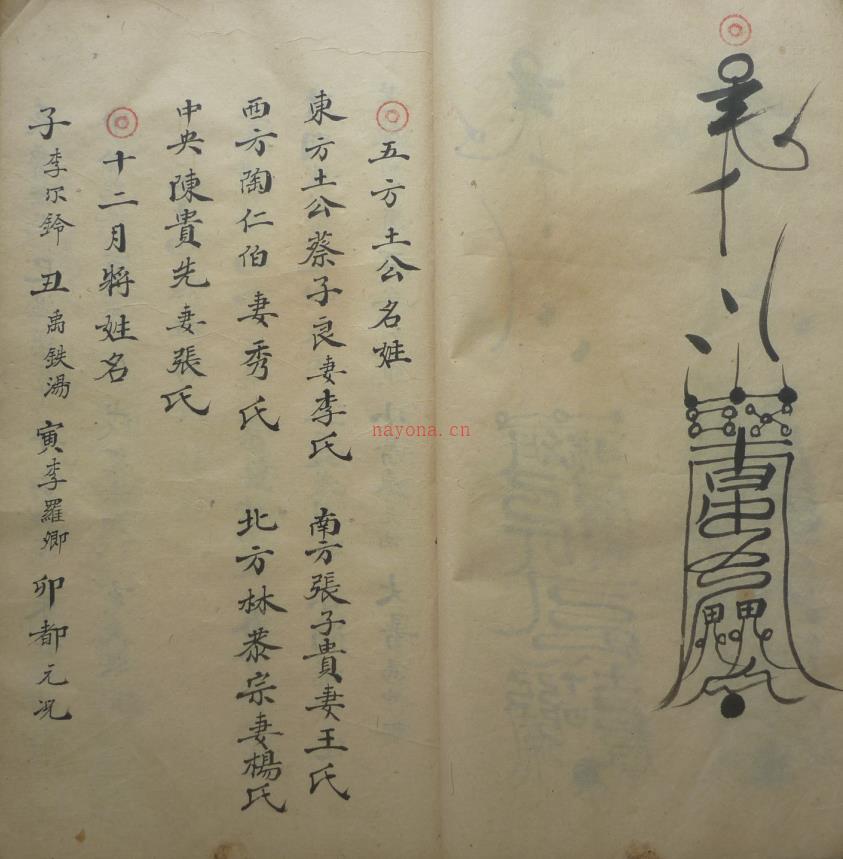 五方土公名姓
東方土公蔡子良妻李氏 南方張子貴妻王氏
西方陶仁伯妻秀氏 北方林恭宗妻楊氏
中央陳貴先妻張氏
十二月將姓名
子李尔鈴 丑禹鉄湯 寅李羅卿 卯都元况
nayona.cn